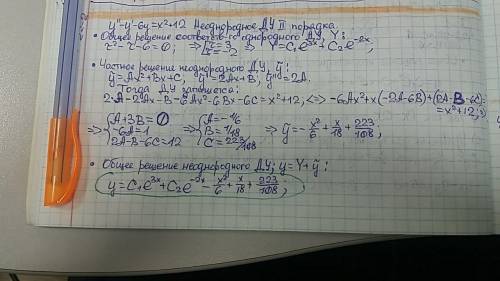 y''-y'-6y=x²+12 Неоднородное ДУ II порядка.
• Общее решение соответств-го однородного ДУ, Y:
r²-r-6=0; ⇒ [r=3 r=-2 ⇒ Y=C₁e^{3x}+C₂e^{-2x},
• Частное решение неоднородного ДУ, ỹ:
ỹ=Ax²+Bx+C, ỹ'=2Ax+B, ỹ''=2A.
Тогда ДУ запишется:
2A-2Ax-B-6Ax²-6Bx-6C=x²+12, <=> -6Ax²+x(-2A-6B)+(2A-B-6C)=
=x²+12,
⇒ {A+3B=0 -6A=1 2A-B-6C=12 ⇒ {A=-1/6 B=1/18 C=223/108 ⇒ ỹ=-x²/6+x/18+223/108,
• Общее решение неоднородного ДУ, y=Y+ỹ:
y=C₁e^{3x}+C₂e^{-2x}-x²/6+x/18+223/108,